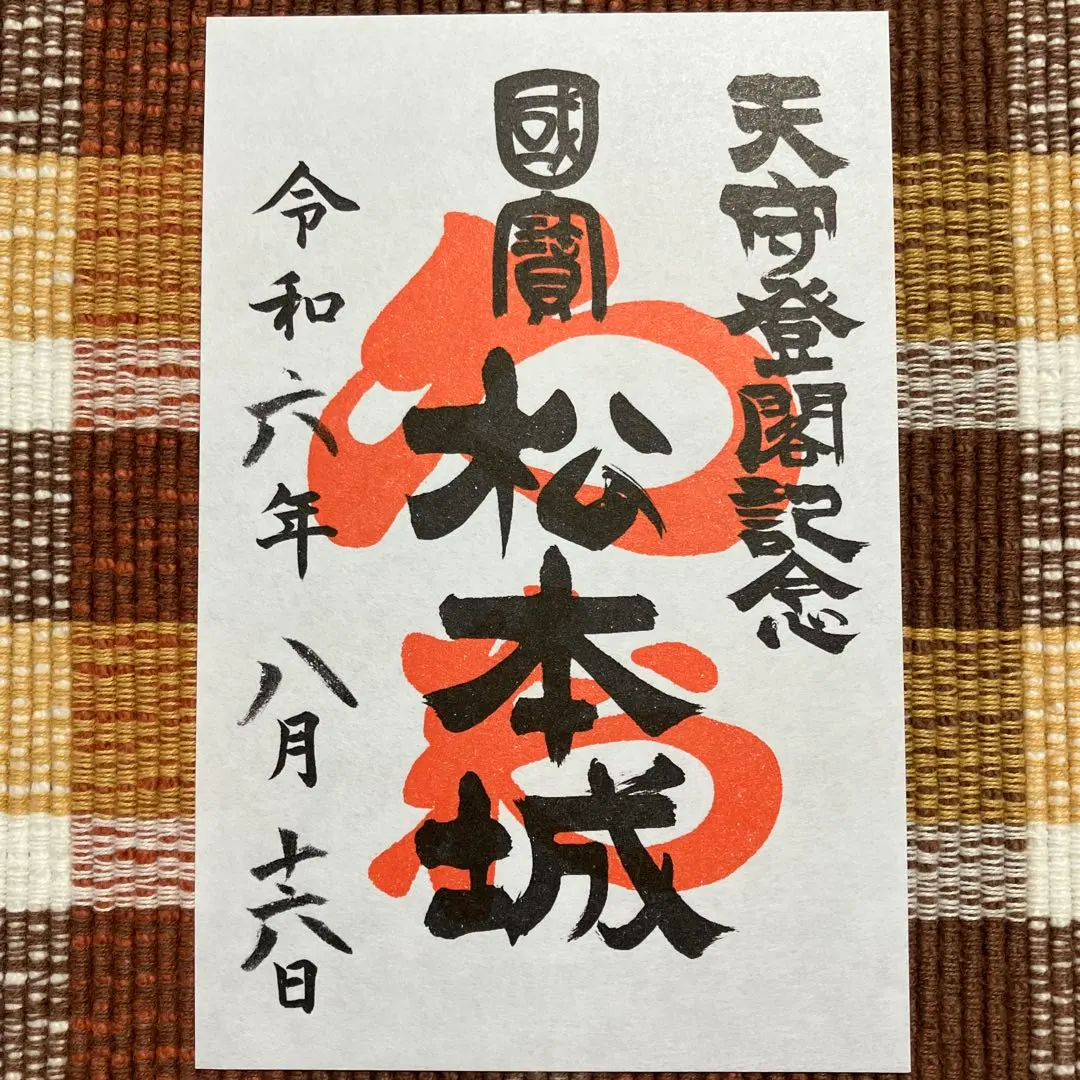 天守登閣記念
國寶
松本城
令和六年 八月十六日